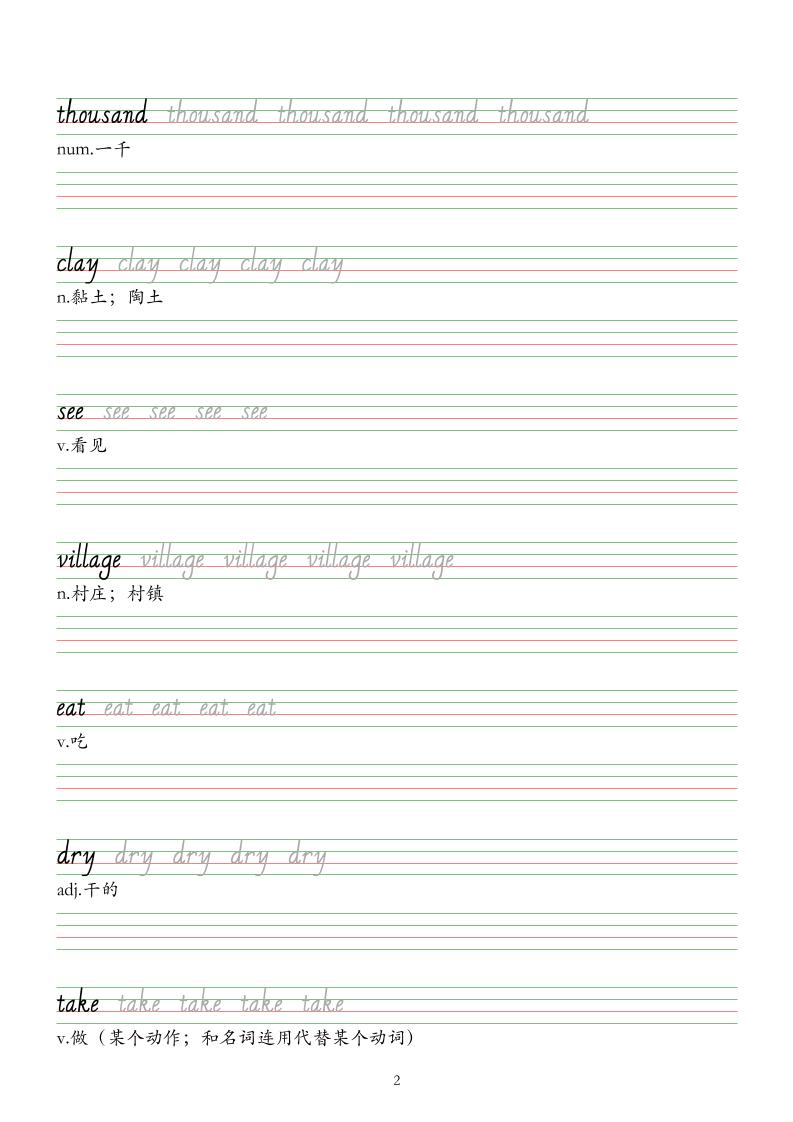 thousand thousand thousand thousand thousand
num.一千
clay clay clay clay clay
n.黏土；陶土
see see see see see
v.看见
village village village village village
n.村庄；村镇
eat eat eat eat eat
v.吃
dry dry dry dry dry
adj.干的
take take take take take
v.做（某个动作；和名词连用代替某个动词）
2